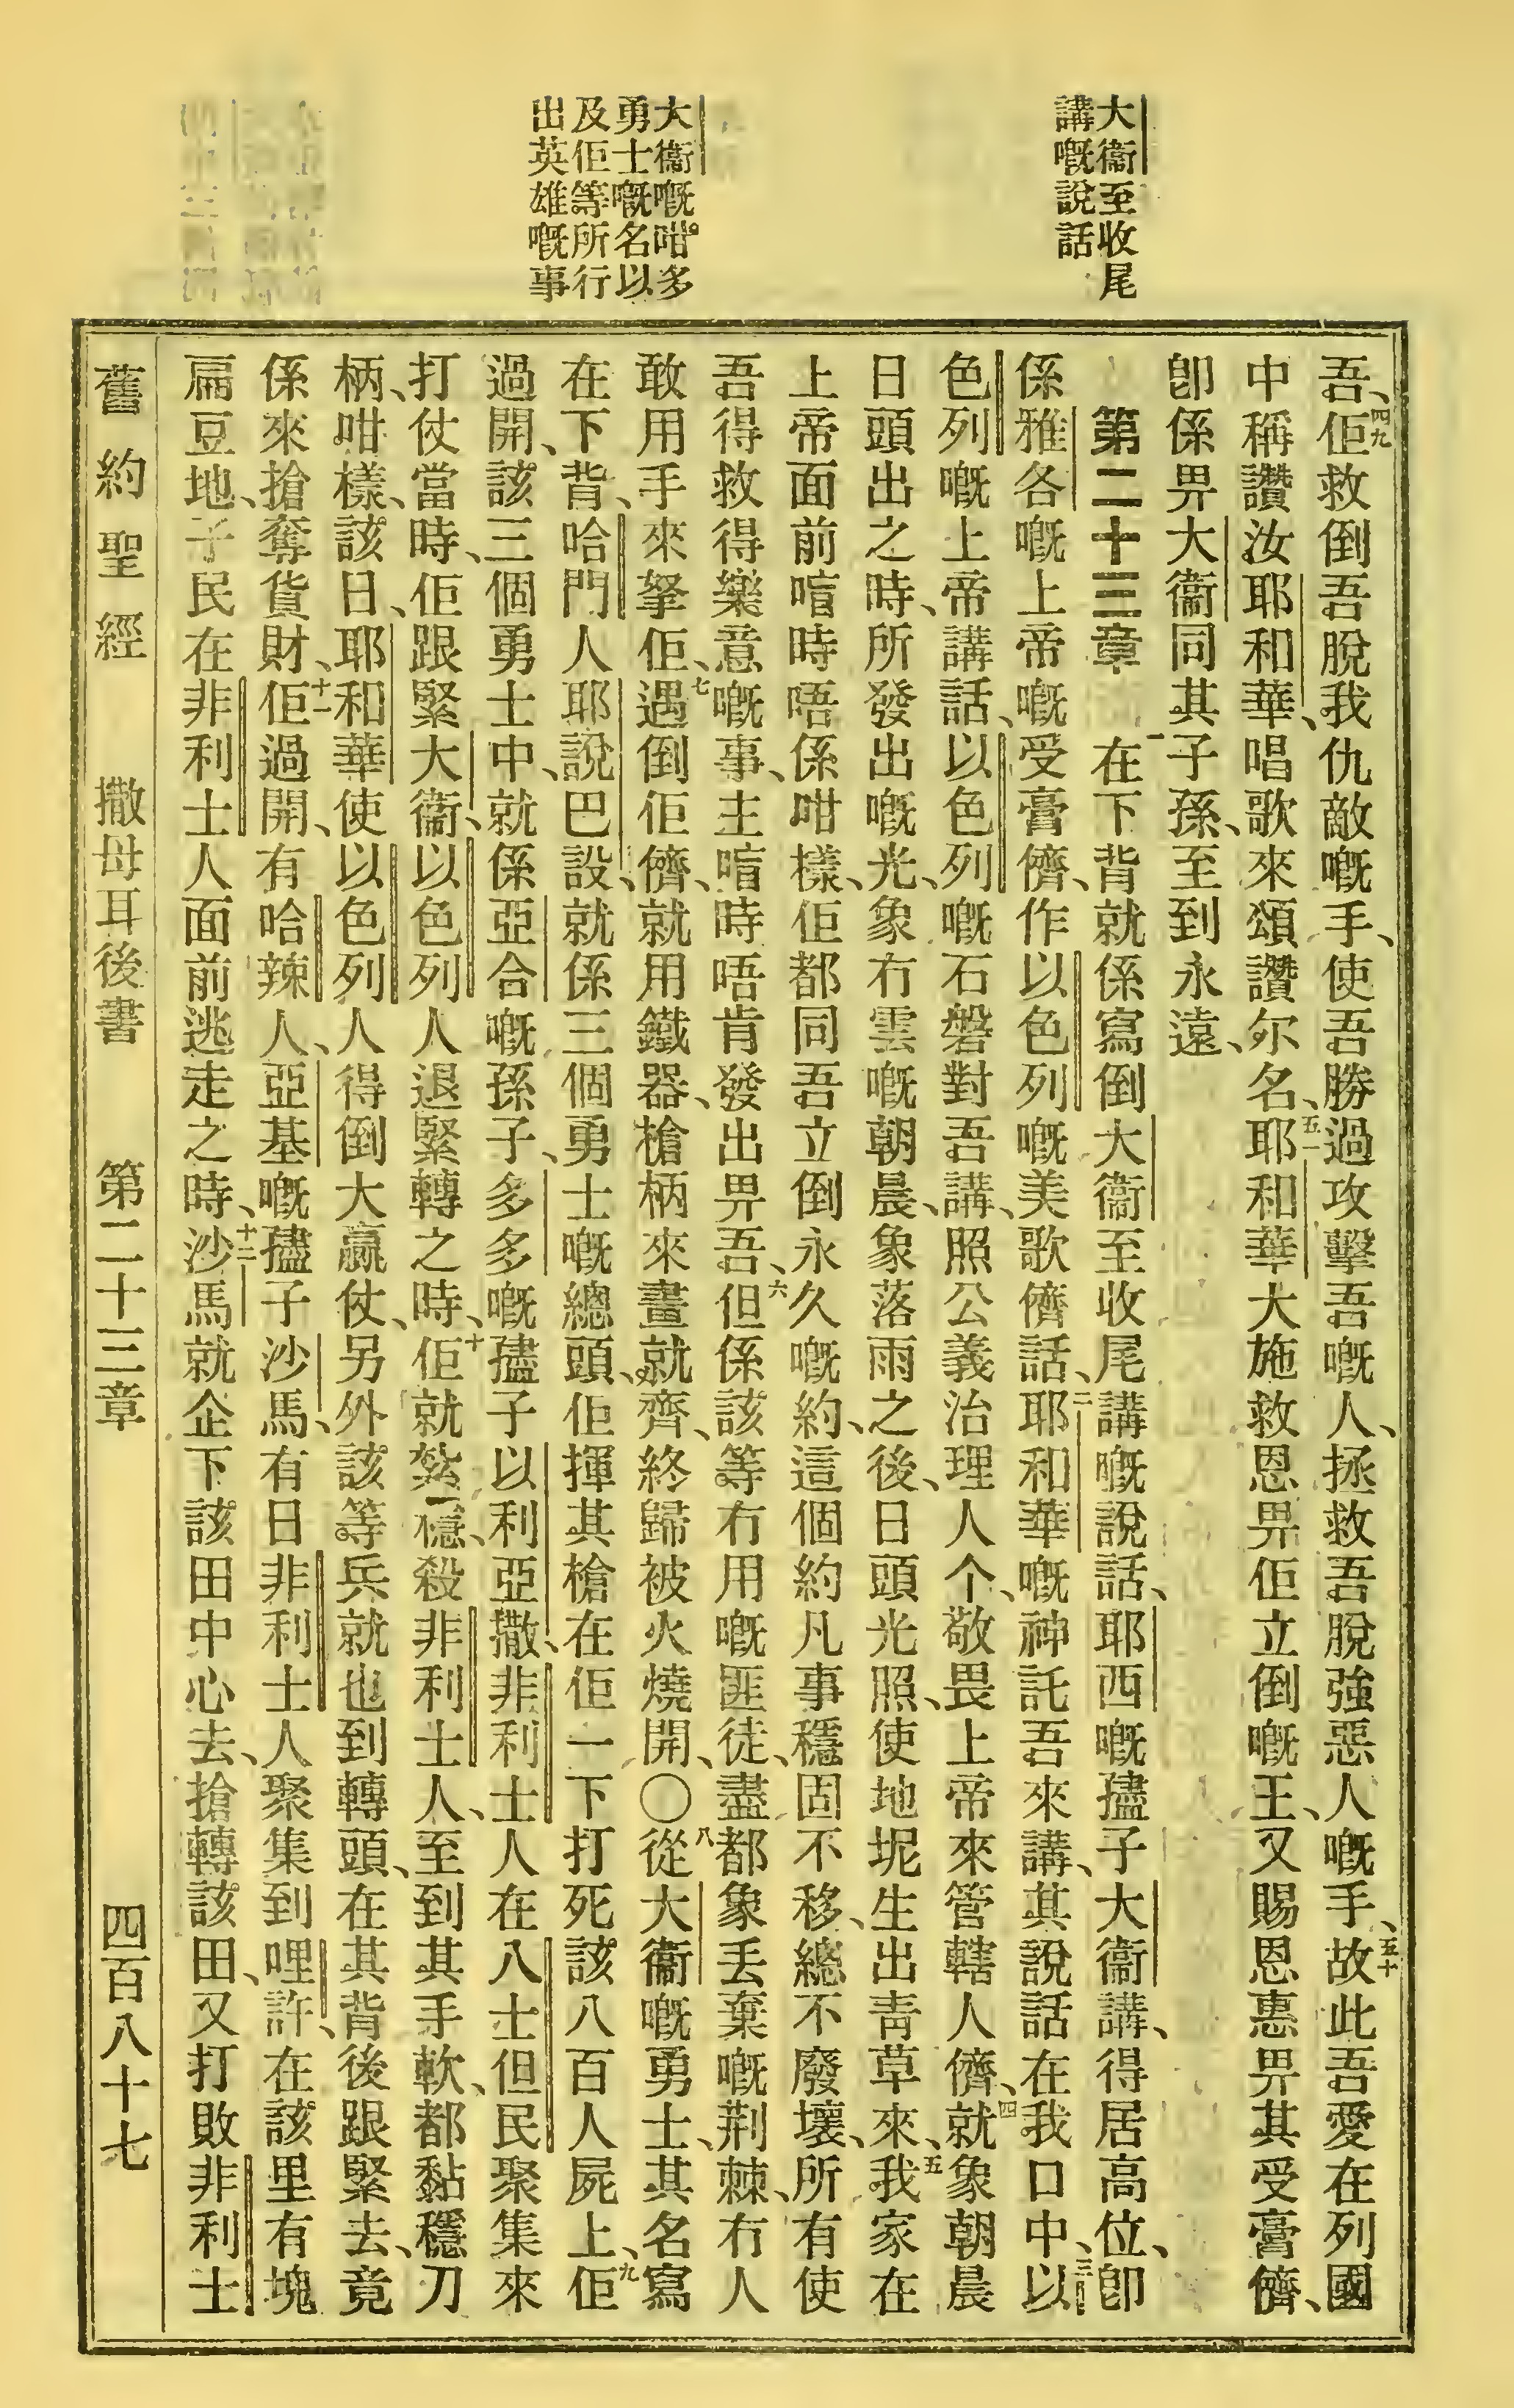 大衞至收尾
講嘅說話
大衞嘅咁多
勇士嘅名以
及佢等所行
出英雄嘅事
吾、四九佢救倒吾脫我仇敵嘅手、使吾勝過攻擊吾嘅人、拯救吾脫強惡人嘅手、五十故此吾愛在列國
中稱讚汝耶和華、唱歌來頌讚尔名、五一耶和華大施救恩畀佢立倒嘅王、又賜恩惠畀其受膏儕、
卽係畀大衞同其子孫、至到永遠、
第二十三章 一在下背就係寫倒大衞至收尾講嘅說話、耶西嘅𡥧子大衞講、得居高位、卽
係雅各嘅上帝嘅受膏儕、作以色列嘅美歌儕話、二耶和華嘅神託吾來講、其說話在我口中、三以
色列嘅上帝講話、以色列嘅石磐對吾講、照公義治理人个、敬畏上帝來管轄人儕、四就象朝晨
日頭出之時、所發出嘅光、象冇雲嘅朝晨、象落雨之後、日頭光照、使地坭生出靑草來、五我家在
上帝面前喧時唔係咁樣、佢都同吾立倒永久嘅約、這個約凡事穩固不移、總不廢壞、所有使
吾得救得樂意嘅事、主喧時唔肯發出畀吾、六但係該等冇用嘅匪徒、盡都象丟棄嘅荆棘、冇人
敢用手來拏佢、七遇倒佢儕、就用鐵器、槍柄來畫就齊、終歸被火燒開、〇八從大衞嘅勇士、其名寫
在下背、哈門人耶說巴設、就係三個勇士嘅總頭、佢揮其槍在佢一下打死該八百人屍上、九佢
過開、該三個勇士中、就係亞合嘅孫子、多多嘅𡥧子以利亞撒、非利士人在八士但民聚集來
打仗當時、佢跟緊大衞、以色列人退緊轉之時、十佢就企穩、殺非利士人、至到其手軟、都黏穩刀
柄、咁樣、該日、耶和華使以色列人得倒大贏仗、另外該等兵就也到轉頭、在其背後跟緊去、竟
係來搶奪貨財、十一佢過開、有哈辣人、亞基嘅𡥧子沙馬、有日非利士人聚集到哩許、在該里有塊
扁豆地、子民在非利士人面前逃走之時、十二沙馬就企下該田中心去、搶轉該田、又打敗非利士
舊約聖經 撒母耳後書 第二十三章 四百八十七